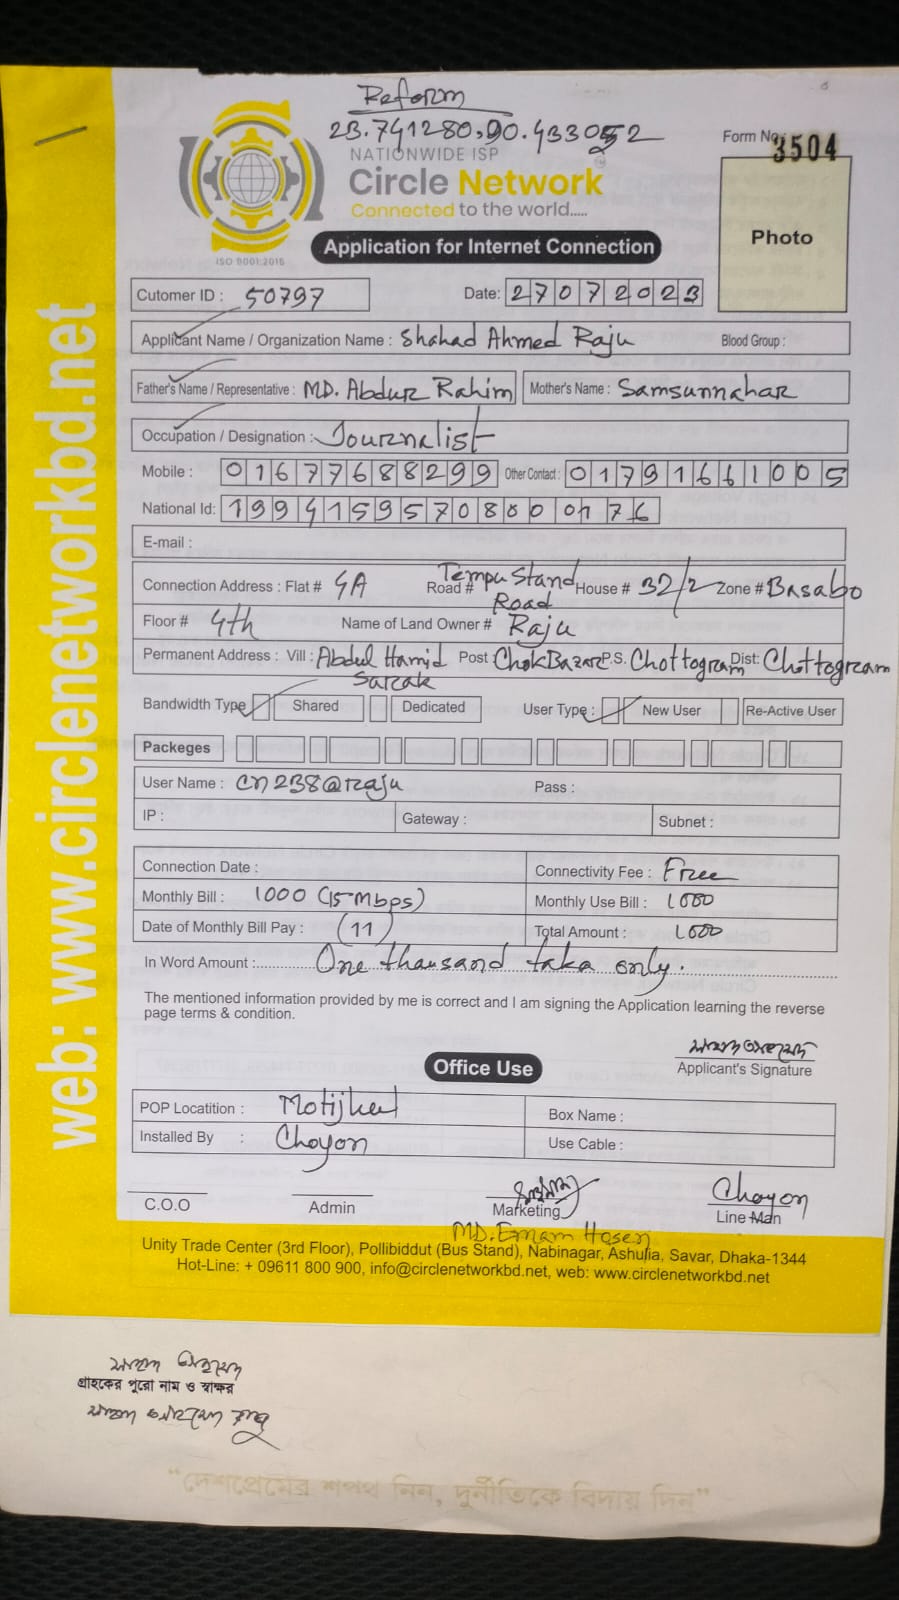 Reform
23.741280,90.433052
NATIONWIDE ISP
Circle Network
Connected to the world.....
ISO 9001:2015
Form No: 3504
Photo
Application for Internet Connection
Cutomer ID : 50797 Date: 27072023
Applicant Name / Organization Name : Shahad Ahmed Raju Blood Group :
Father's Name / Representative : MD. Abdur Rahim Mother's Name : Samsunnahar
Occupation / Designation : Journalist
Mobile : 01677688299 Other Contact : 01791661005
National Id: 19941595708000176
E-mail :
Connection Address : Flat # 4A Road # Tempu Stand Road House # 32/2 Zone # Basabo
Floor # 4th Name of Land Owner # Raju
Permanent Address : Vill : Abdul Hamid Sarak Post : ChokBazar P.S. Chottogram Dist: Chottogram
Bandwidth Type Shared Dedicated User Type : New User Re-Active User
Packeges
User Name : cn238@raju Pass :
IP : Gateway : Subnet :
Connection Date : Connectivity Fee : Free
Monthly Bill : 1000 (15-Mbps) Monthly Use Bill : 1000
Date of Monthly Bill Pay : (11) Total Amount : 1000
In Word Amount :.......One thousand taka only.
The mentioned information provided by me is correct and I am signing the Application learning the reverse
page terms & condition.
Applicant's Signature
Office Use
POP Locatition : Motijheel Box Name :
Installed By : Choyon Use Cable :
Choyon
C.O.O Admin Marketing Line Man
MD. Emam Hosen
Unity Trade Center (3rd Floor), Pollibiddut (Bus Stand), Nabinagar, Ashulia, Savar, Dhaka-1344
Hot-Line: + 09611 800 900, info@circlenetworkbd.net, web: www.circlenetworkbd.net
web: www.circlenetworkbd.net
গ্রাহকের পুরো নাম ও স্বাক্ষর
"দেশপ্রেমের শপথ নিন, দুর্নীতিকে বিদায় দিন"